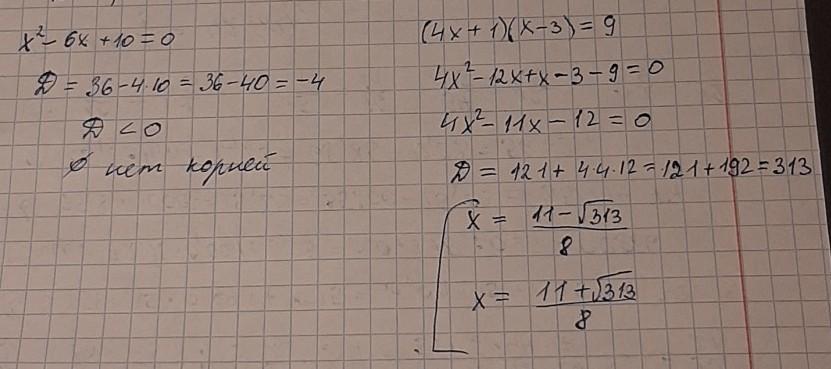 x² - 6x + 10 = 0
D = 36 - 4·10 = 36 - 40 = -4
D < 0
∅ нет корней
(4x + 1)(x - 3) = 9
4x² - 12x + x - 3 - 9 = 0
4x² - 11x - 12 = 0
D = 121 + 4·4·12 = 121 + 192 = 313
[ x = (11 - √313) / 8
x = (11 + √313) / 8